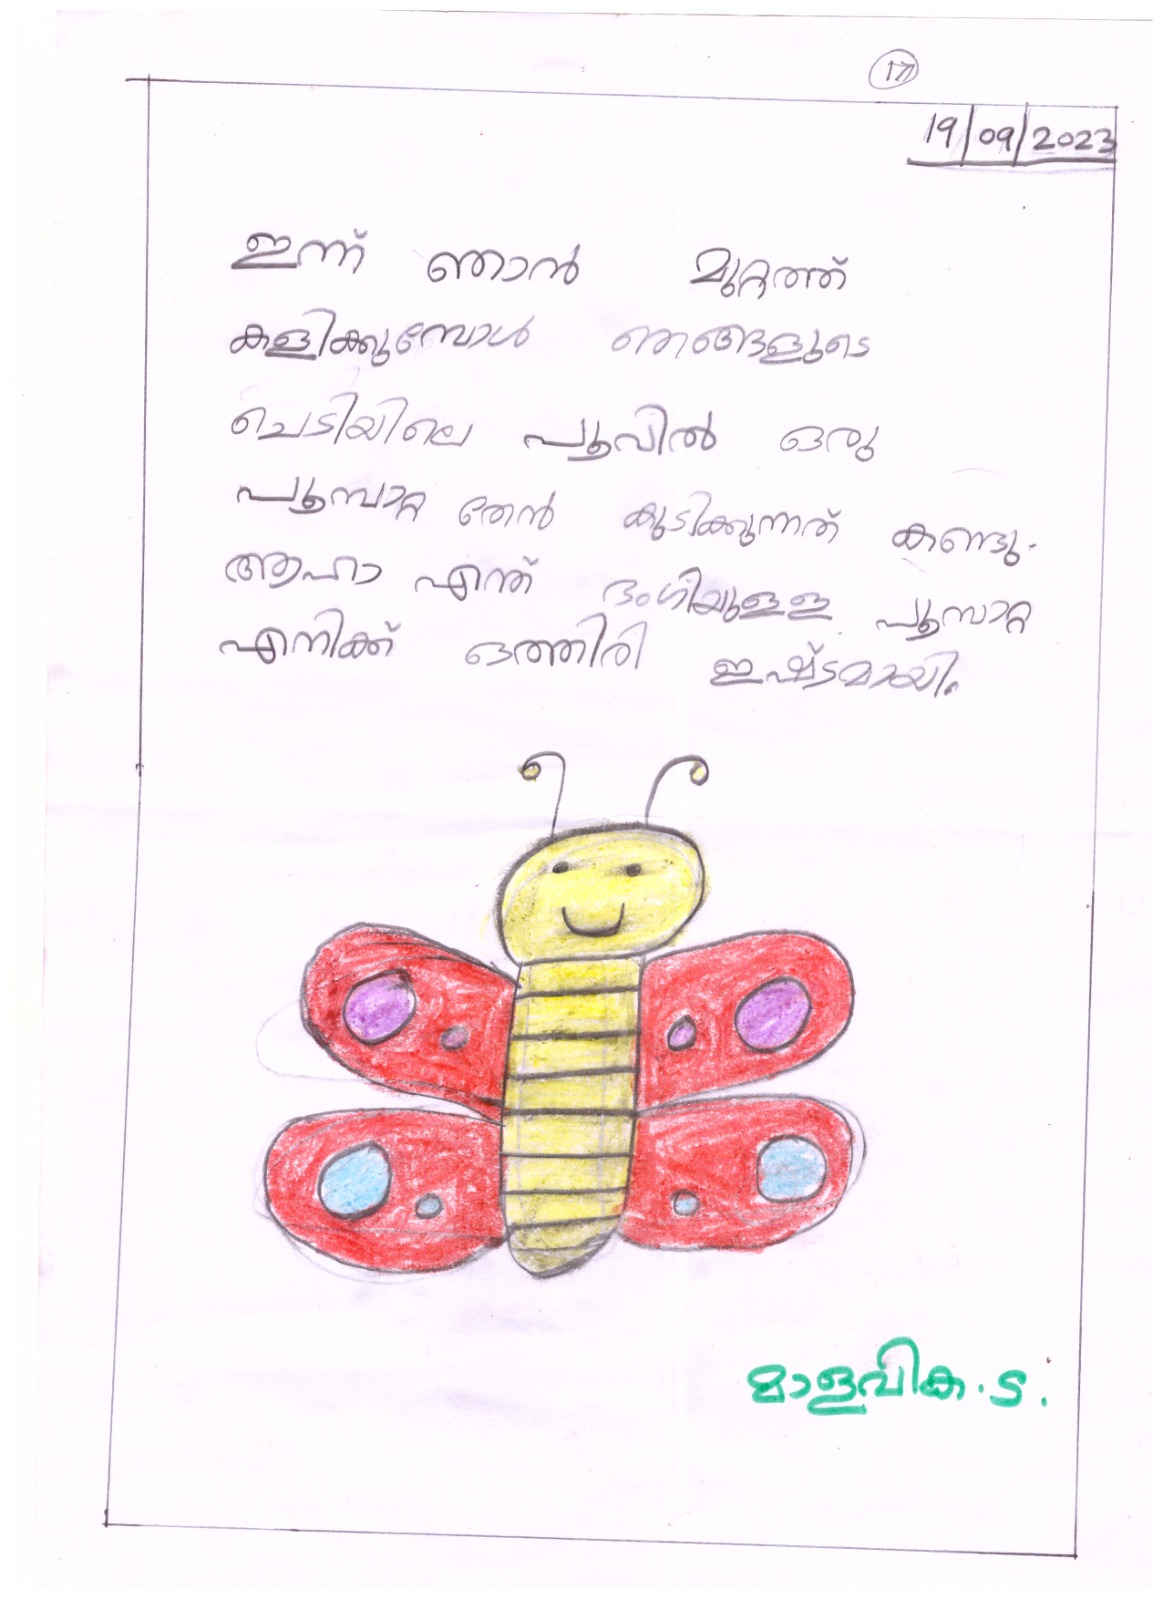 17
19/09/2023
ഇന്ന് ഞാൻ മുറ്റത്ത്
കളിക്കുമ്പോൾ ഞങ്ങളുടെ
ചെടിയിലെ പൂവിൽ ഒരു
പൂമ്പാറ്റ തേൻ കുടിക്കുന്നത് കണ്ടു.
ആഹാ എന്ത് ഭംഗിയുളള പൂമ്പാറ്റ
എനിക്ക് ഒത്തിരി ഇഷ്ടമായി.
മാളവിക.ട.